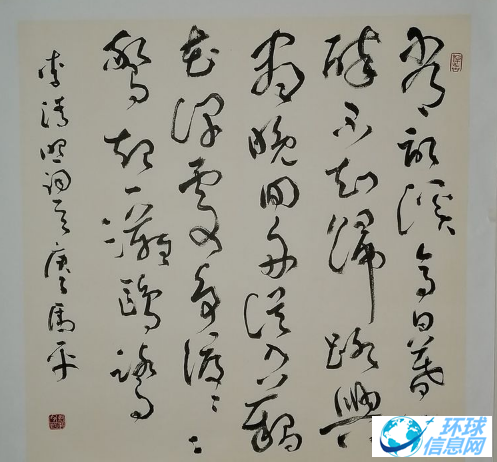 常記溪亭日暮
醉不知歸路興
盡晚回舟误入藕
花深處争渡〻〻
驚起一灘鷗鷺
李清照词一首庚子馬平
环球
信息网